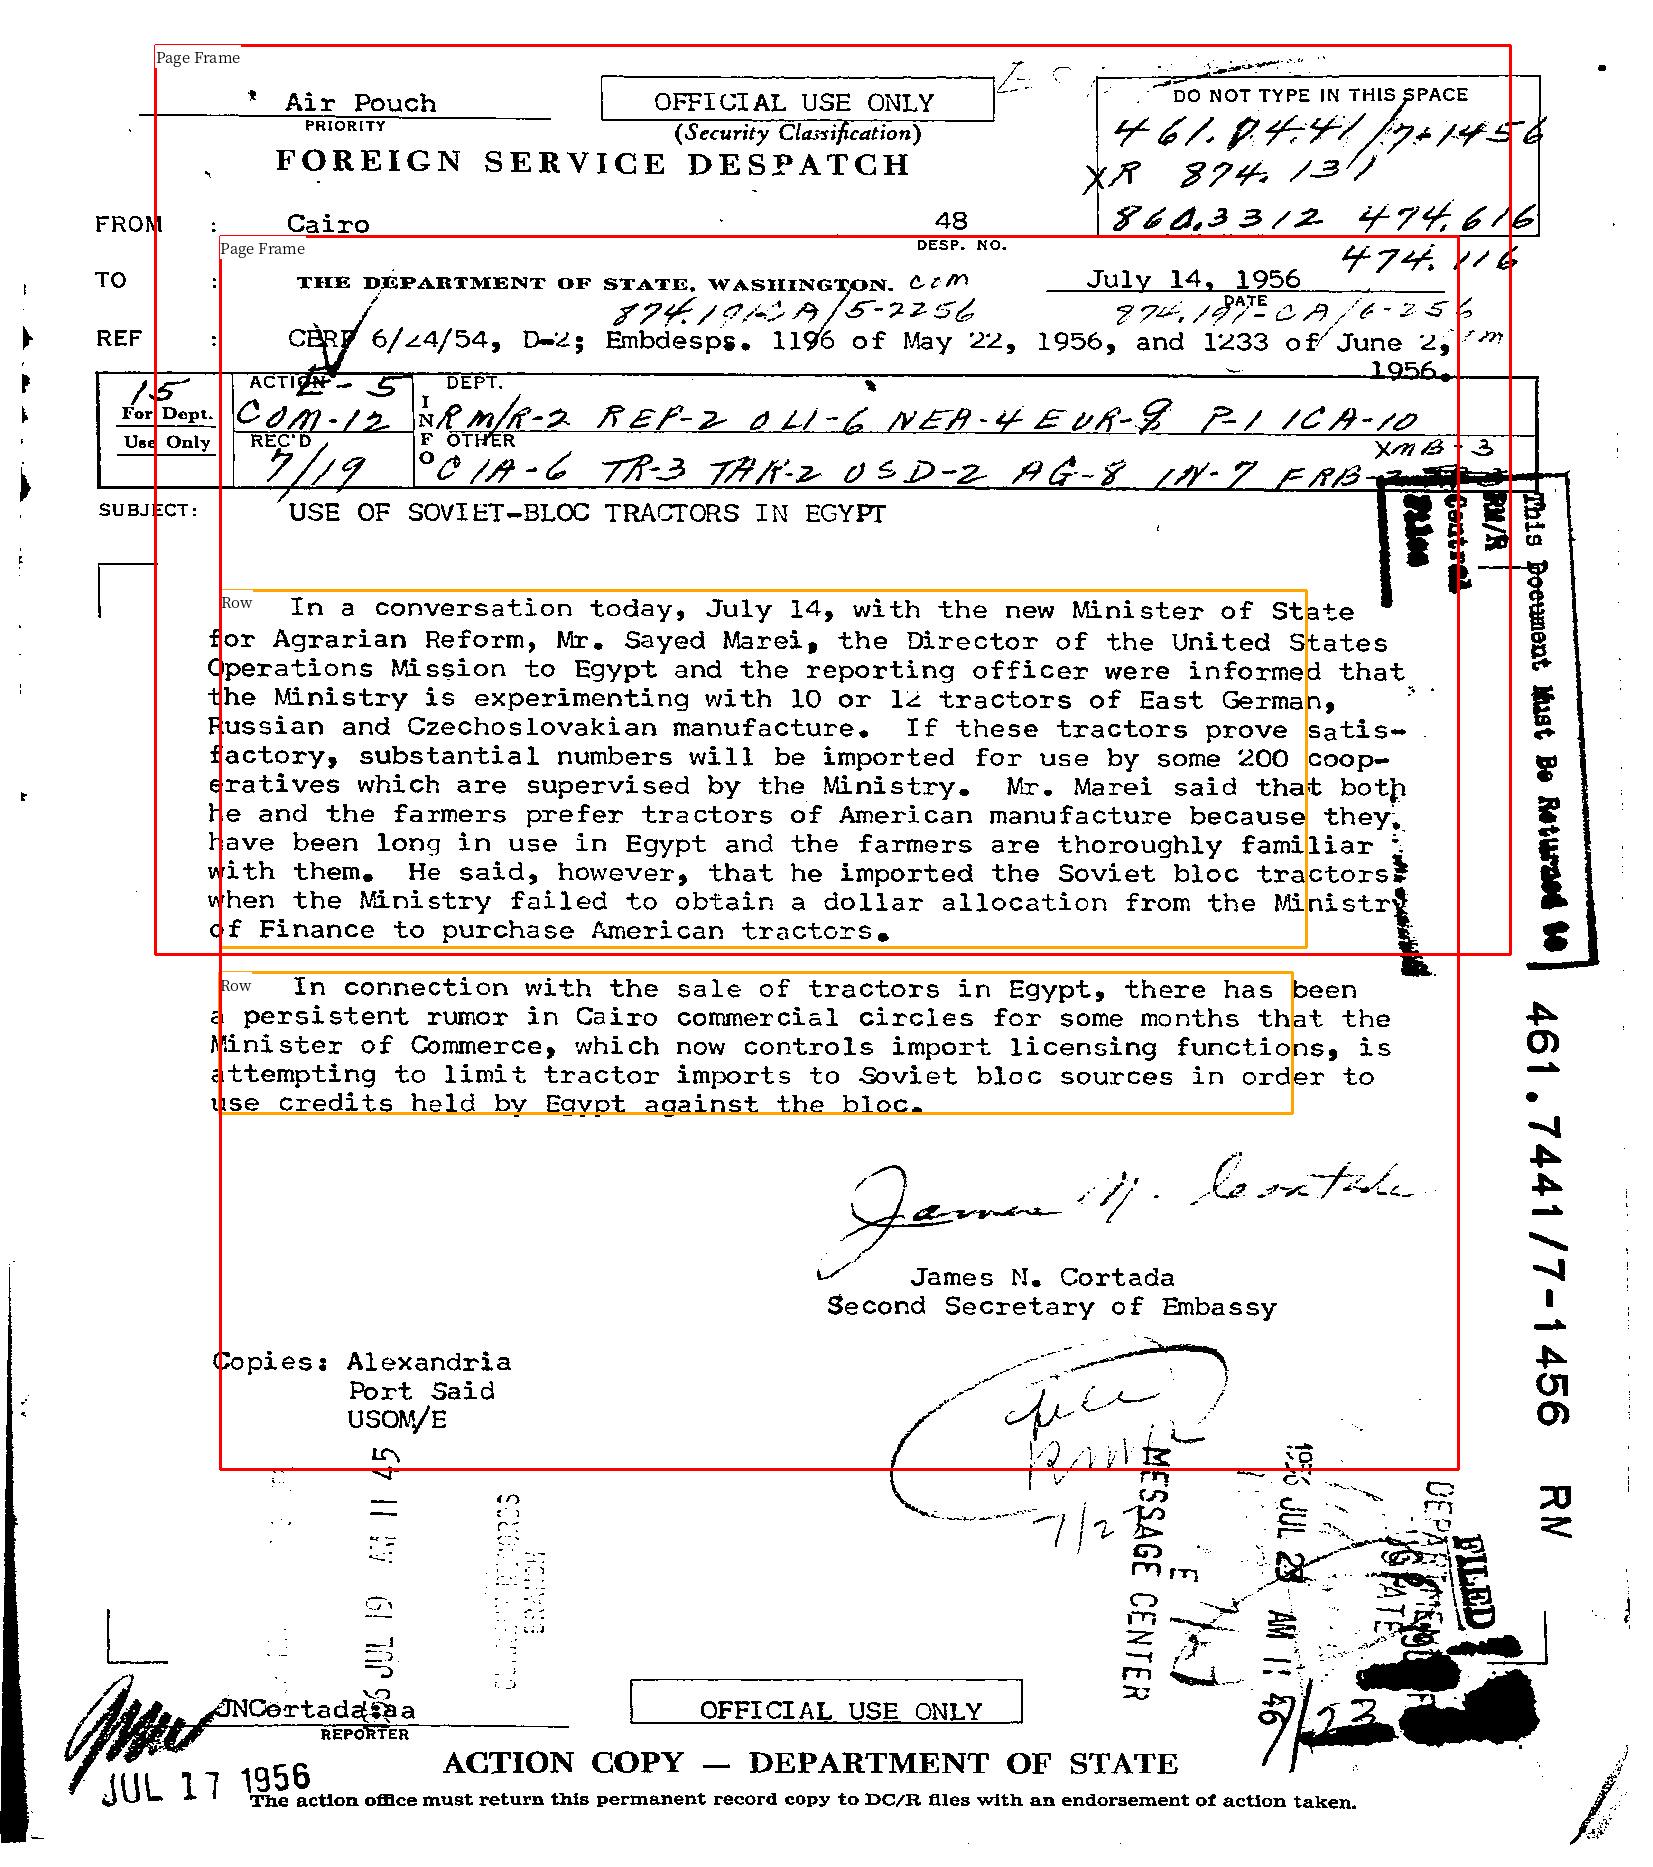 Air Pouch
PRIORITY
OFFICIAL USE ONLY
(Security Classification)
FOREIGN SERVICE DESPATCH
DO NOT TYPE IN THIS SPACE
461.7441/7-1456
XR 874.131
860.3312 474.616
474.116
FROM : Cairo
48
DESP. NO.
TO : THE DEPARTMENT OF STATE, WASHINGTON. com
July 14, 1956
DATE
874.191-CA/5-2256 874.191-CA/6-256
REF : CERP 6/24/54, D-2; Embdesps. 1196 of May 22, 1956, and 1233 of June 2,
1956.
15
For Dept.
Use Only
ACTION E-5
COM-12
REC'D
7/19
DEPT.
INFO
RM/R-2 REP-2 OLI-6 NEA-4 EUR-8 P-1 ICA-10
OTHER
XMB-3
CIA-6 TR-3 TAR-2 OSD-2 AG-8 IN-7 FRB-2
SUBJECT: USE OF SOVIET-BLOC TRACTORS IN EGYPT
This Document Must Be Returned to
RM/R
Central
Files
Page Frame
Page Frame
Row
In a conversation today, July 14, with the new Minister of State
for Agrarian Reform, Mr. Sayed Marei, the Director of the United States
Operations Mission to Egypt and the reporting officer were informed that
the Ministry is experimenting with 10 or 12 tractors of East German,
Russian and Czechoslovakian manufacture. If these tractors prove satis-
factory, substantial numbers will be imported for use by some 200 coop-
eratives which are supervised by the Ministry. Mr. Marei said that both
he and the farmers prefer tractors of American manufacture because they
have been long in use in Egypt and the farmers are thoroughly familiar
with them. He said, however, that he imported the Soviet bloc tractors
when the Ministry failed to obtain a dollar allocation from the Ministry
of Finance to purchase American tractors.
Row
In connection with the sale of tractors in Egypt, there has been
a persistent rumor in Cairo commercial circles for some months that the
Minister of Commerce, which now controls import licensing functions, is
attempting to limit tractor imports to Soviet bloc sources in order to
use credits held by Egypt against the bloc.
461.7441/7-1456 RN
James N. Cortada
James N. Cortada
Second Secretary of Embassy
Copies: Alexandria
Port Said
USOM/E
JUL 19 AM 11 45
MESSAGE CENTER
1956 JUL 23 AM 11 46
FILED
JNCortada:aa
REPORTER
OFFICIAL USE ONLY
7/23
ACTION COPY — DEPARTMENT OF STATE
JUL 17 1956
The action office must return this permanent record copy to DC/R files with an endorsement of action taken.